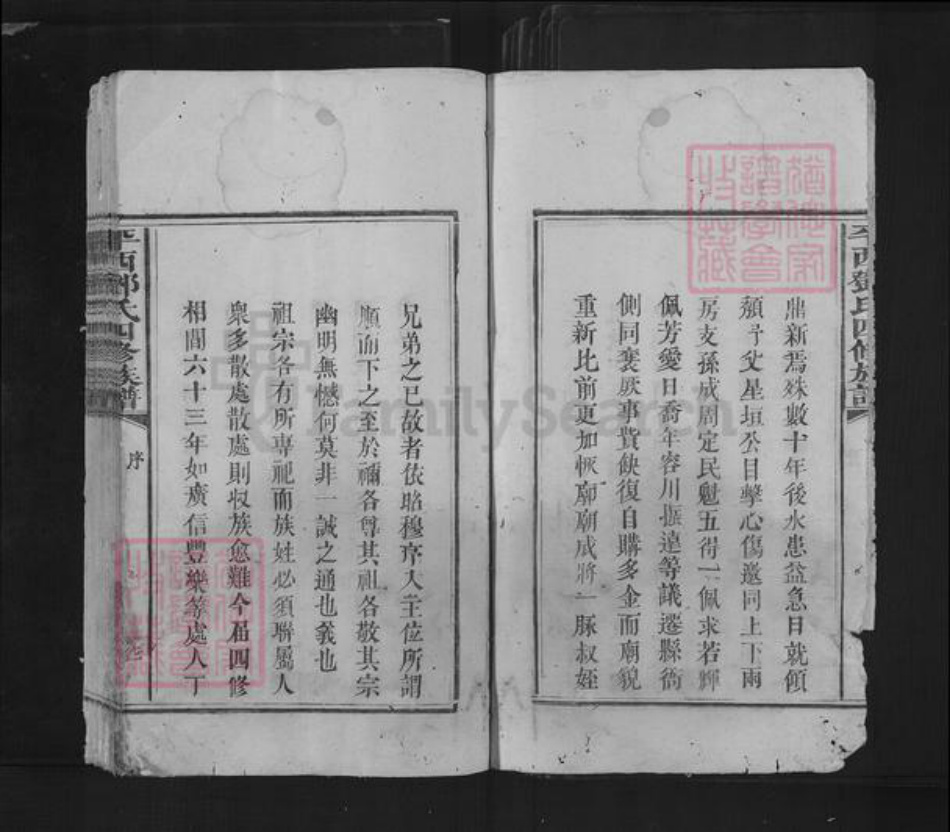 平西鄧氏四修族譜
鼎新焉殊數十年後水患益急日就傾
頹予父星垣公目擊心傷邀同上下兩
房支孫成周定民魁五得一佩求若輝
佩芳愛日喬年容川振遠等議遷縣衙
側同襄厥事貲缺復自購多金而廟貌
重新比前更加恢廓廟成將一脉叔姪
兄弟之已故者依昭穆序入主位所謂
順而下之至於禰各尊其祖各敬其宗
幽明無憾何莫非一誠之通也義也
祖宗各有所專祀而族姓必須聯屬人
衆多散處散處則収族愈難今届四修
相間六十三年如廣信豐樂等處人丁
平西鄧氏四修族譜
序
FamilySearch